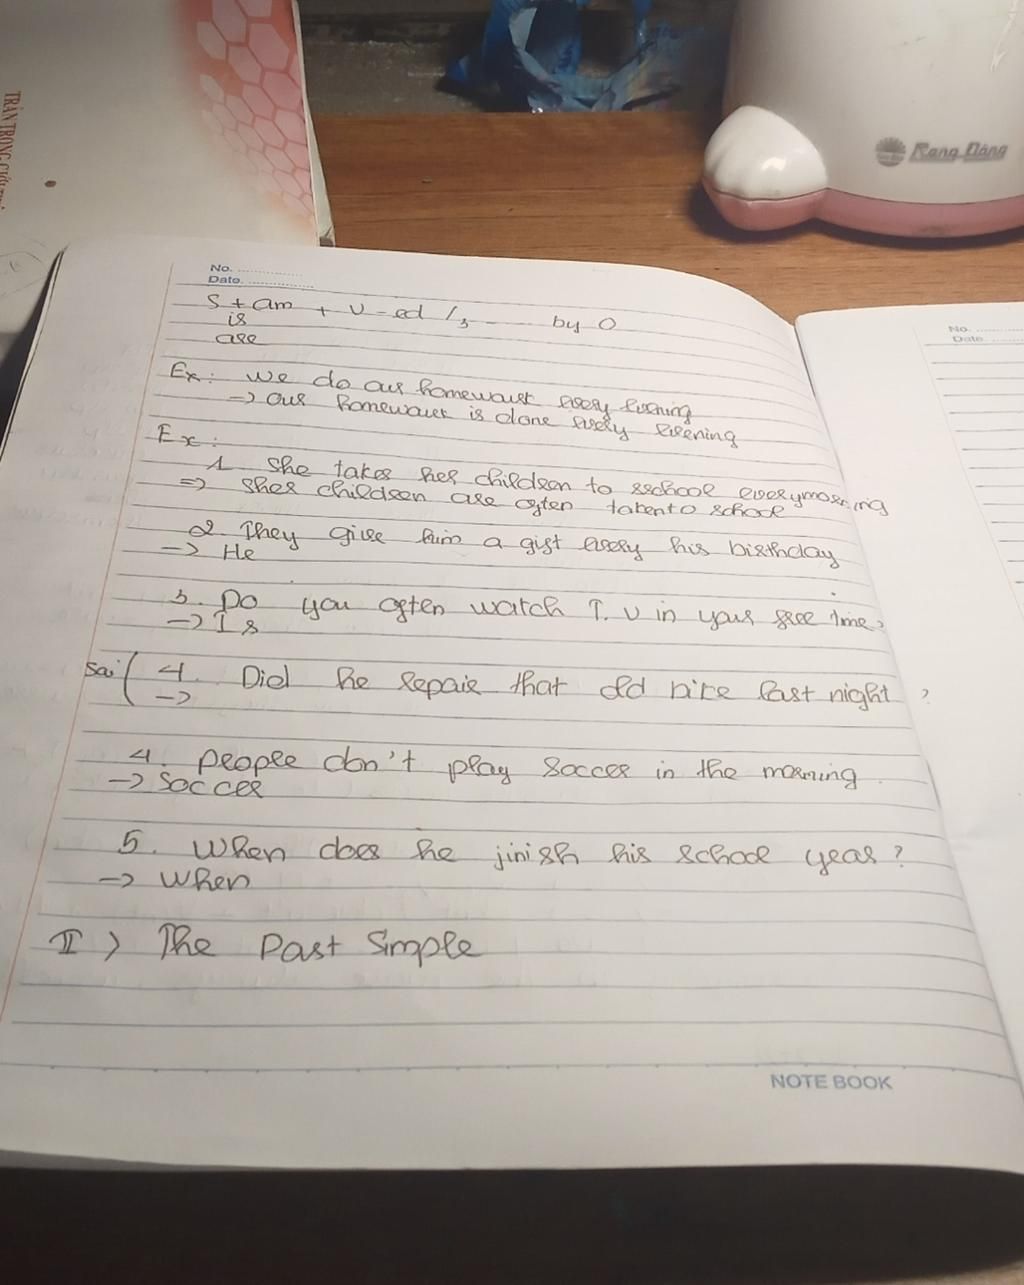 TRẦN TRỌNG
Rang Đông
No.
Date.
S + am + V-ed /3 by O
is
are
Ex: we do our homework every evening
-> our homework is done every evening
Ex:
1. She takes her children to school everymorning
=> Sher children are often taken to school
2. They give him a gift every his birthday
-> He
3. Do you often watch T.V in your free time?
-> Is
Sai ( 4. Did he repair that old bike last night ?
->
4. people don't play soccer in the morning.
-> soccer
5. When does he jinish his school year?
-> when
II > The Past Simple
NOTE BOOK
No.
Date.